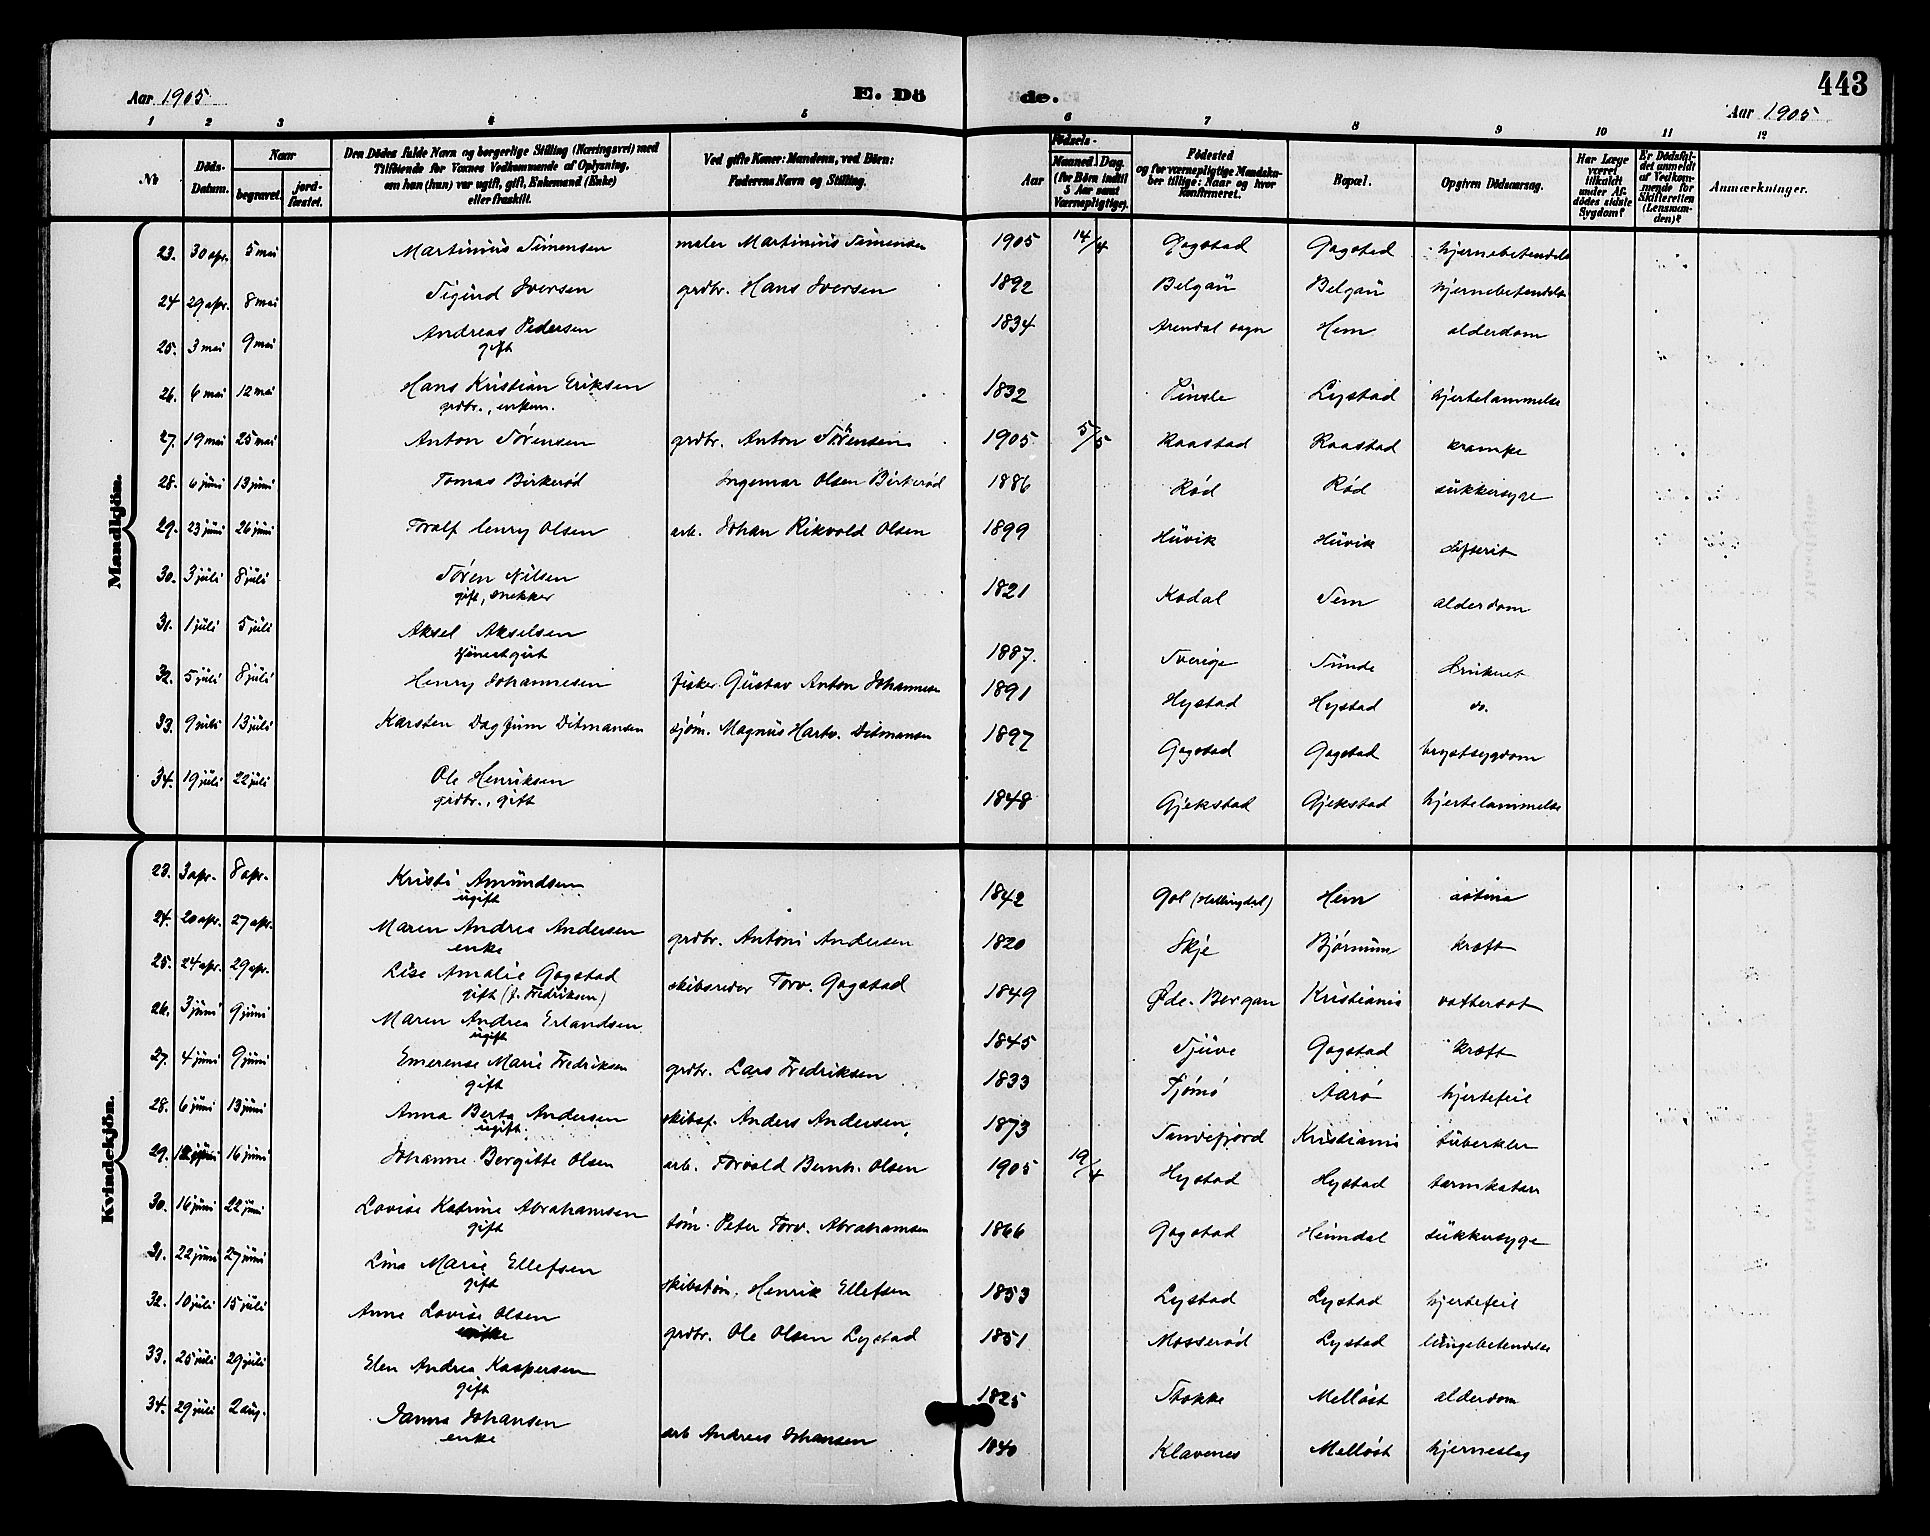 443
Aar 1905
E. Dö de.
Aar 1905
1 2 3 4 5 6 7 8 9 10 11 12
No
Döds-Datum.
Naar
begravet.
jord-fæstet.
Den Dödes fulde Navn og borgerlige Stilling (Næringsvei) med
Tilföiende for Voxnes Vedkommende af Oplysning,
om han (hun) var ugift, gift, Enkemand (Enke)
eller fraskilt.
Ved gifte Koner: Mandens, ved Börn:
Faderens Navn og Stilling.
Födsels-
Aar
Maaned
Dag.
(for Börn indtil
5 Aar samt
Værnepligtige).
Födested
og for værnepligtige Mandska-
ber tillige: Naar og hvor
konfirmeret.
Bopæl.
Opgiven Dödsaarsag.
Har Læge
været
tilkaldt
under Af-
dödes sidste
Sygdom?
Er Dödsfal-
det anmeldt
af Vedkom-
mende for
Skifteretten
(Lensman-
den)?
Anmærkninger.
Mandkjön.
23. 30 apr. 5 mai Martinius Simensen maler Martinius Simensen 1905 14/4 Gogstad Gogstad hjernebetendelse
24 29 apr. 8 mai Sigurd Iversen grdbr. Hans Iversen 1892 Belgau Belgau hjernebetendelse
25. 3 mai 9 mai Andreas Pedersen 1834 Arendal sogn Hem alderdom
gift
26. 6 mai 12 mai Hans Kristian Eriksen 1832 Lystad hjertelammelse
grdbr., enkem.
27. 19 mai 25 mai Anton Sørensen grdbr. Anton Sørensen 1905 5/5 Raastad Raastad krampe
28. 6 juni 13 juni Tomas Birkerød Ingemar Olsen Birkerød 1886 Rød Rød sukkersyge
29. 23 juni 26 juni Toralf Henry Olsen arb. Johan Rikvold Olsen 1899 Huvik Huvik difterit
30. 3 juli 8 juli Søren Nilsen 1821 Kodal Sem alderdom
gift, snekker
31. 1 juli 5 juli Aksel Akselsen 1887. Sverige Sunde druknet
tjenestgut
32. 5 juli 8 juli Henry Johannesen fisker Gustav Anton Johannesen 1891 Hystad Hystad do.
33. 9 juli 13 juli Karsten Dagfinn Ditmansen sjøm. Magnus Hartv. Ditmansen 1897 Gogstad Gogstad brystsygdom
34. 19 juli 22 juli Ole Henriksen 1848 Gjekstad Gjekstad hjertelammelse
grdbr., gift
Kvindekjön.
23. 3 apr. 8 apr. Kristi Amundsen 1842 Gol (Hallingdal) Hem astma
ugift
24. 20 apr. 27 apr. Maren Andrea Andersen grdbr. Antoni Andersen 1820 Skje Bjørnum kræft
enke
25. 24 apr. 29 apr. Lise Amalie Gogstad skibsreder Torv. Gogstad 1849 Øde-Bergan Kristiania vattersot
gift (f. Fredriksen)
26. 3 juni 9 juni Maren Andrea Erlandsen 1845 Tjuve Gogstad kræft
ugift
27. 4 juni 9 juni Emerense Marie Fredriksen grdbr. Lars Fredriksen 1833 Tjømø Aarø hjertefeil
gift
28. 6 juni 13 juni Anna Berta Andersen skibsf. Anders Andersen 1873 Sandefjord Kristiania tuberkler
ugift.
29. 12 juni 16 juni Johanne Bergitte Olsen arb. Torvald Bernh. Olsen 1905 19/4 Hystad Hystad tarmkatarr
30. 16 juni 22 juni Lovise Katrine Abrahamsen tøm. Peter Torv. Abrahamsen 1866 Gogstad Heimdal sukkersyge
gift
31. 22 juni 27 juni Lina Marie Ellefsen skibstøm. Henrik Ellefsen 1853 Lystad Lystad hjertefeil
gift
32. 10 juli 15 juli Anne Lovise Olsen grdbr. Ole Olsen Lystad 1851 Mosserød Lystad lungebetendelse
33. 25 juli 29 juli Elen Andrea Kaspersen 1825 Stokke Melløst alderdom
gift
34. 29 juli 2 aug. Janna Johansen arb Andreas Johansen 1840 Klavenes Melløst hjerneslag
enke